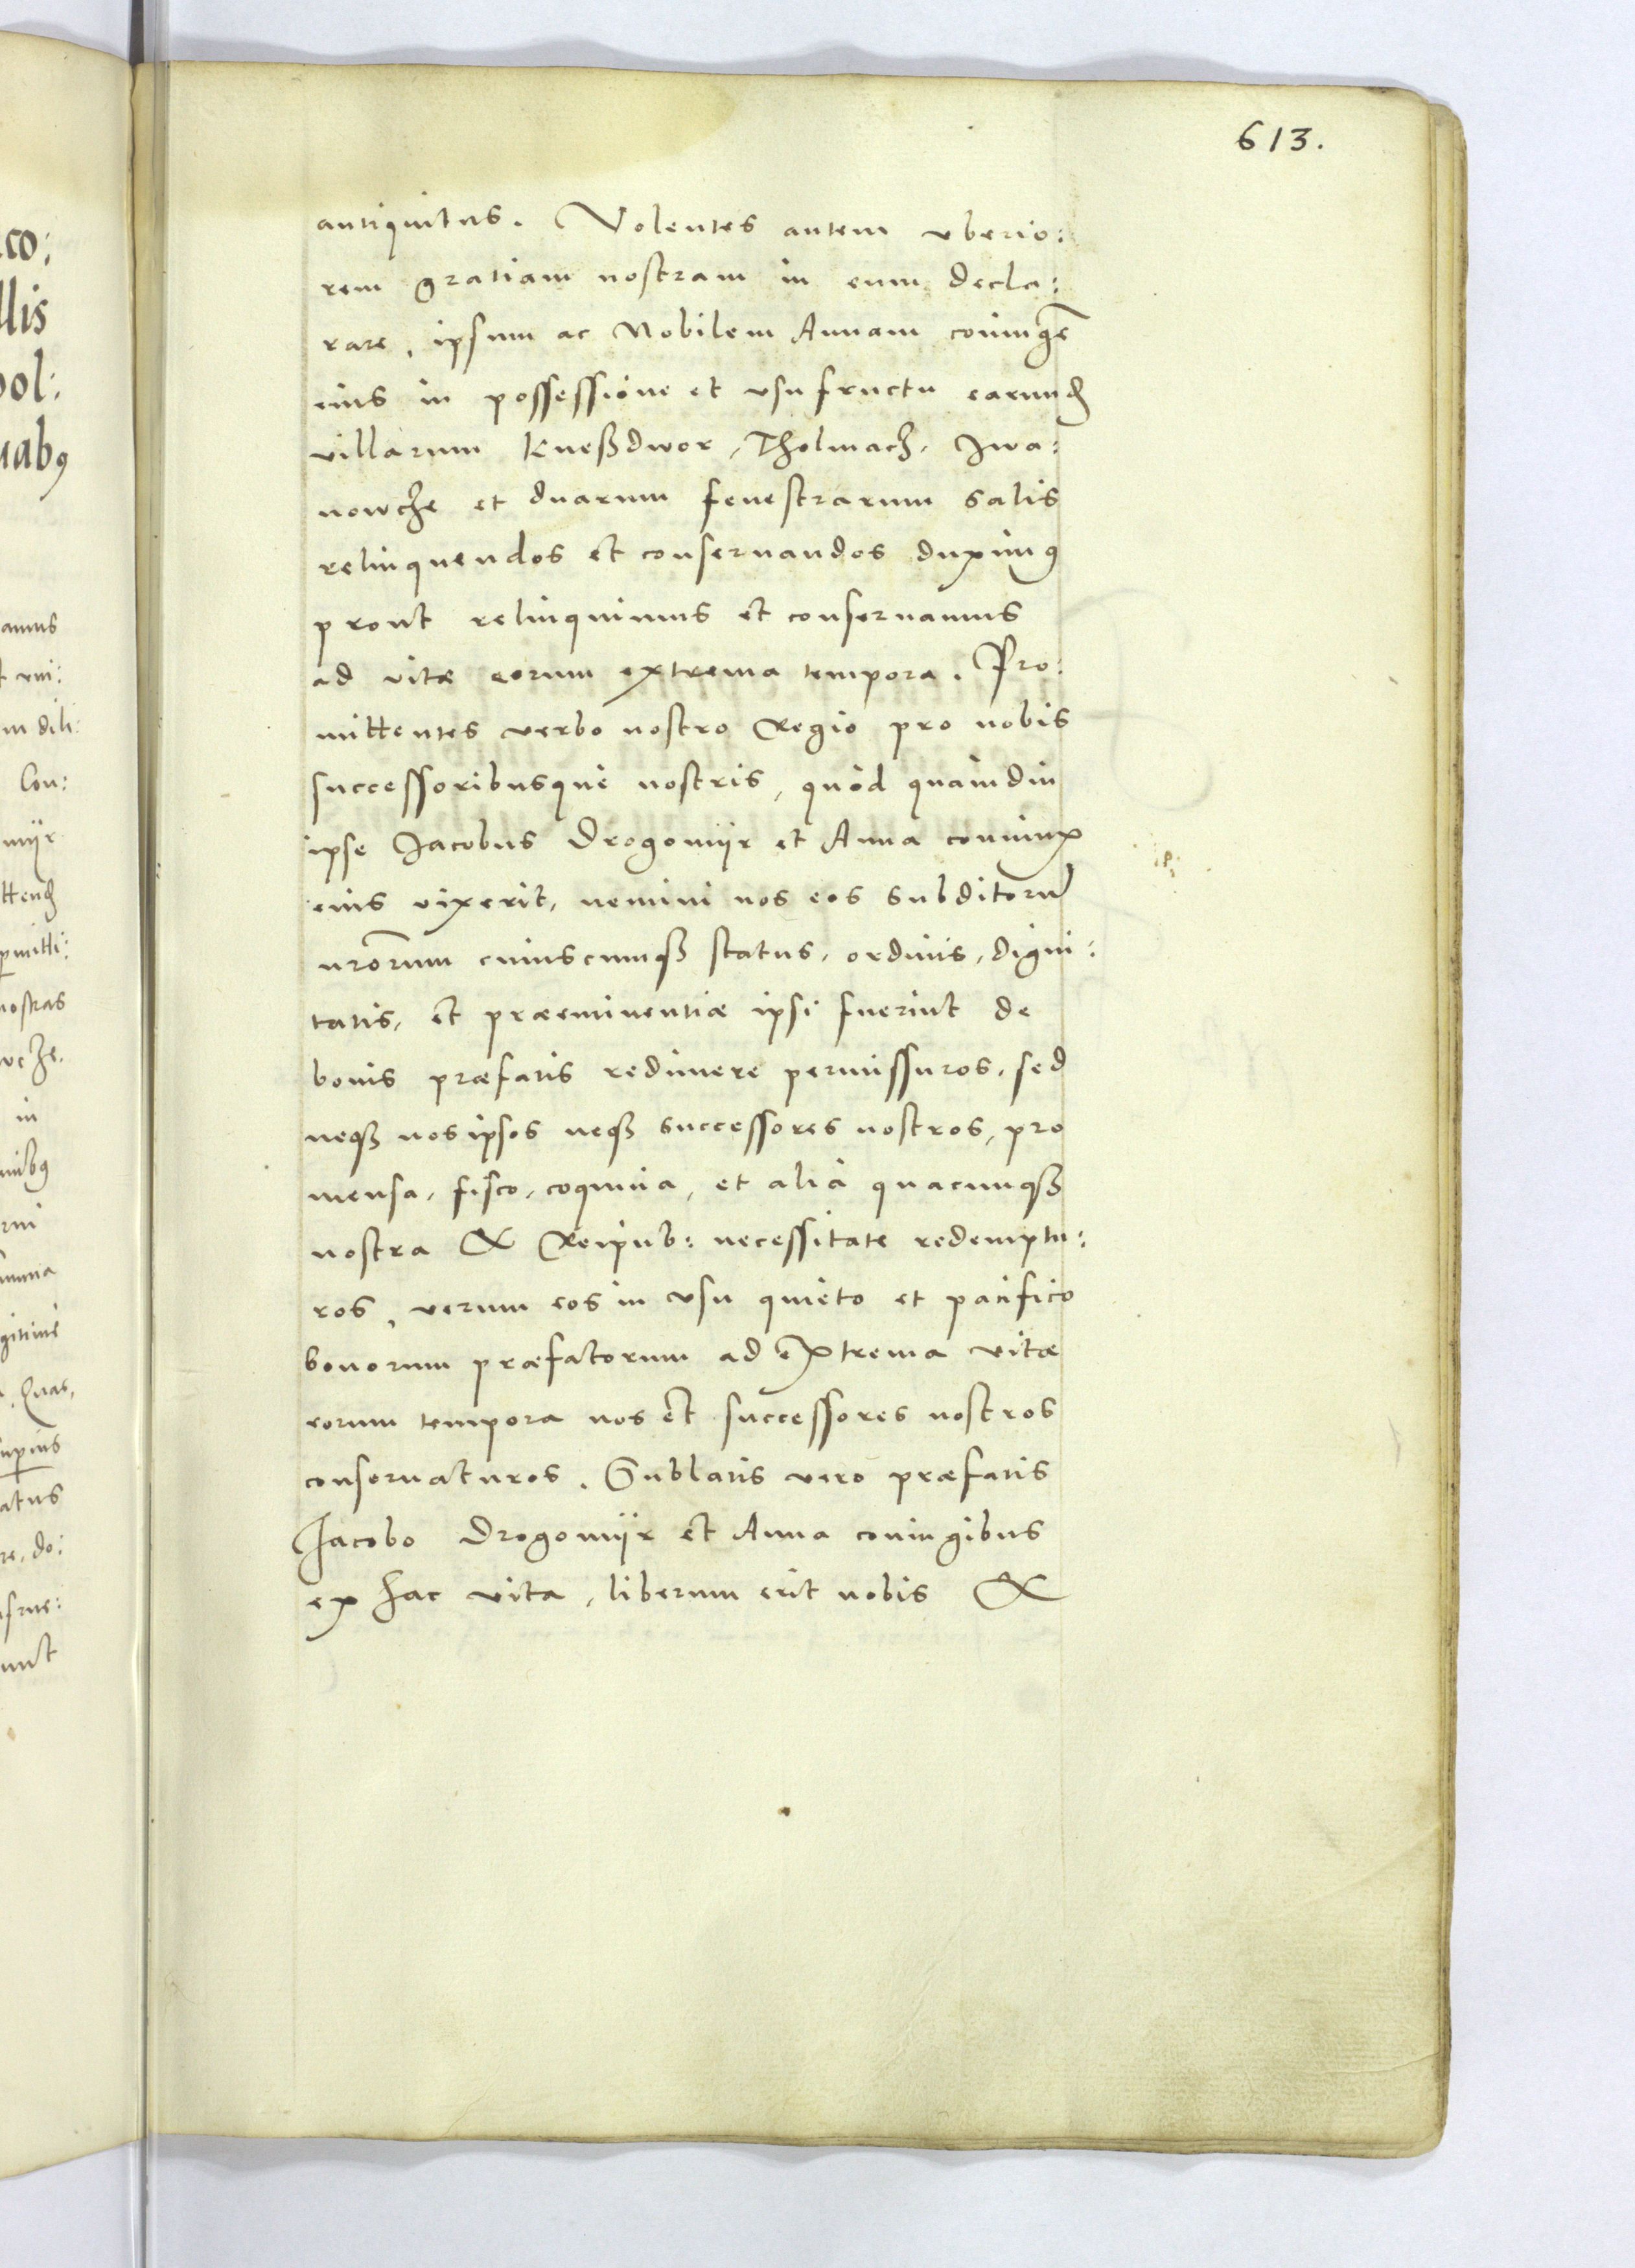 613.
antiquitus. Volentes autem vberio:
rem gratiam nostram in eum decla:
rare, ipsum ac Nobilem Annam coniugē
eius in possessione et vsufructu earund
villarum Kneßdwor, Tholmacz, Iwa:
nowcze et duarum fenestrarum salis
relinquendos et conseruandos duximus
prout relinquimus et conseruamus
ad vitæ eorum extrema tempora. Pro:
mittentes verbo nostro Regio pro nobis
successoribusque nostris, quòd quamdiu
ipse Jacobus Drogomijr et Anna coniunx
eius vixerit, nemini nos eos subditorū
nr̄orum cuiuscumqȝ status, ordinis, digni:
tatis, et præeminentiæ ipsi fuerint de
bonis præfatis redimere permissuros, sed
neqȝ nos ipsos neqȝ successores nostros, pro
mensa, fisco, coquina, et alia quacunqȝ
nostra & Reipub: necessitate redemptu:
ros, verum eos in vsu quieto et pacifico
bonorum præfatorum ad extrema vitæ
eorum tempora nos et successores nostros
conseruaturos. Sublatis vero præfatis
Jacobo Drogomijr et Anna coniugibus
ex hac vita, liberum erit nobis &